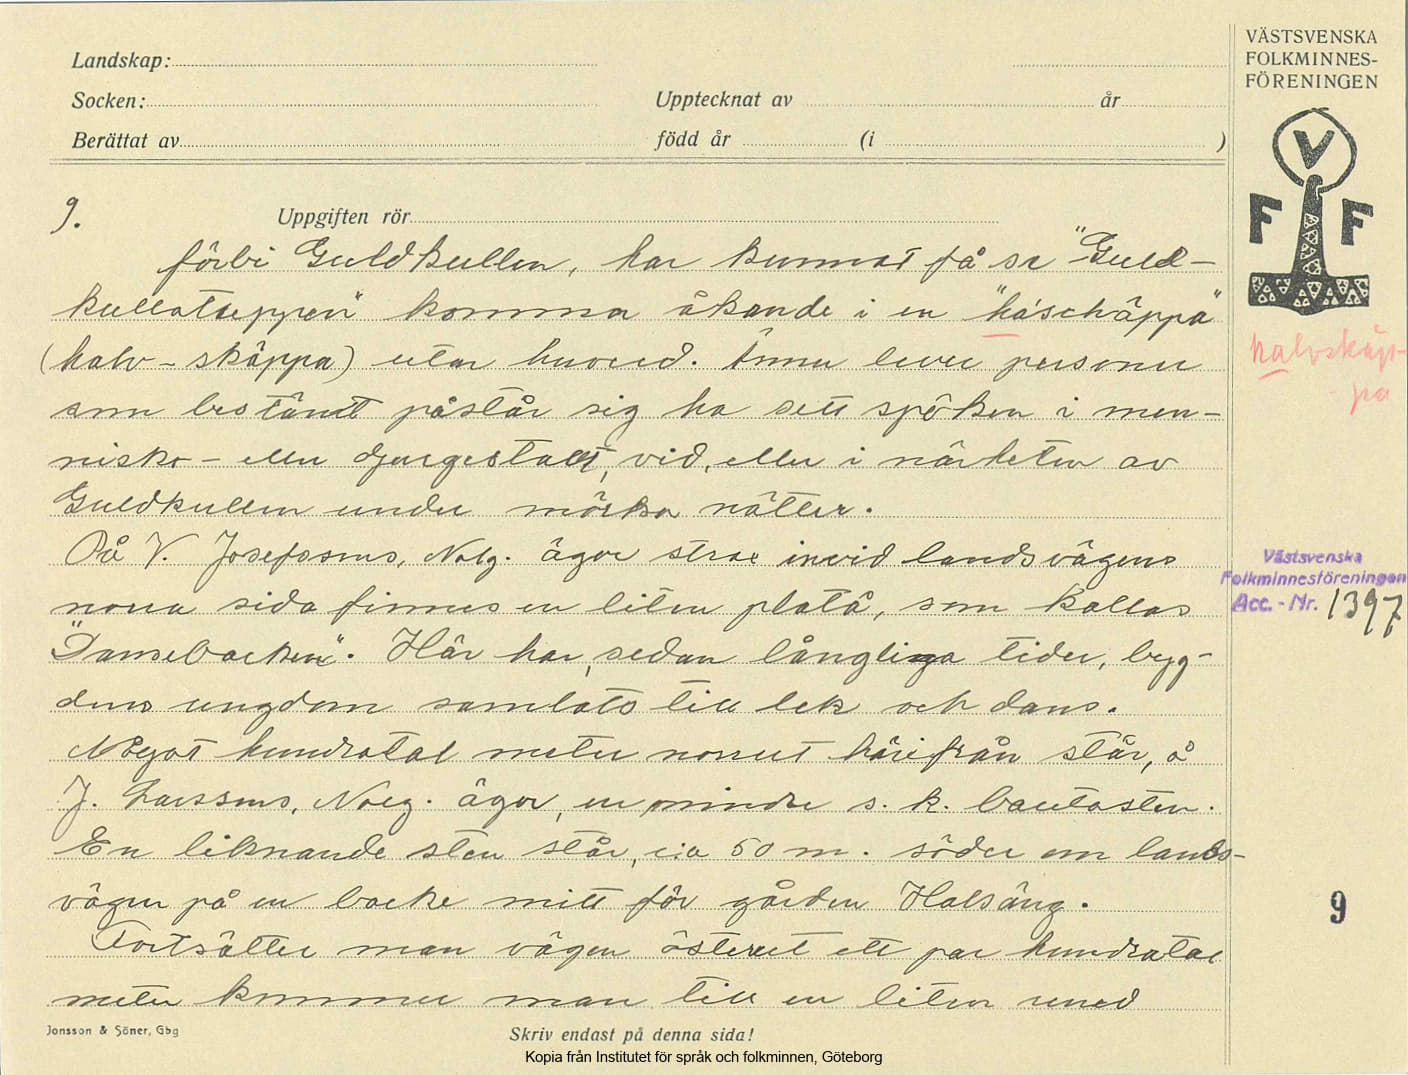 Landskap:
Socken:
Upptecknat av
år
Berättat av
född år
(i
)
VÄSTSVENSKA
FOLKMINNES-
FÖRENINGEN
V
F F
9.
Uppgiften rör
förbi Guldkullen, har kunnat få se "Guld-
kullatseppen" komma åkande i en "háschäppa"
(halv-skäppa) utan huvud. Ännu lever personer
som bestämt påstår sig ha sett spöken i men-
nisko- eller djurgestalt, vid, eller i närheten av
Guldkullen under mörka nätter.
På V. Josefssons, Nolg. ägor strax invid landsvägens
norra sida finnes en liten platå, som kallas
"Dansebacken". Här har, sedan långliga tider, byg-
dens ungdom samlats till lek och dans.
Något hundratal meter norrut härifrån står, å
J. Larssons, Norg. ägor, en mindre s. k. bautasten.
En liknande sten står, c:a 50 m. söder om lands-
vägen på en backe mitt för gården Halsäng.
Fortsätter man vägen österut ett par hundratal
meter kommer man till en liten rund
halvskäp-
pa
Västsvenska
Folkminnesföreningen
Acc. - Nr. 1397
9
Jonsson & Söner, Gbg
Skriv endast på denna sida!
Kopia från Institutet för språk och folkminnen, Göteborg